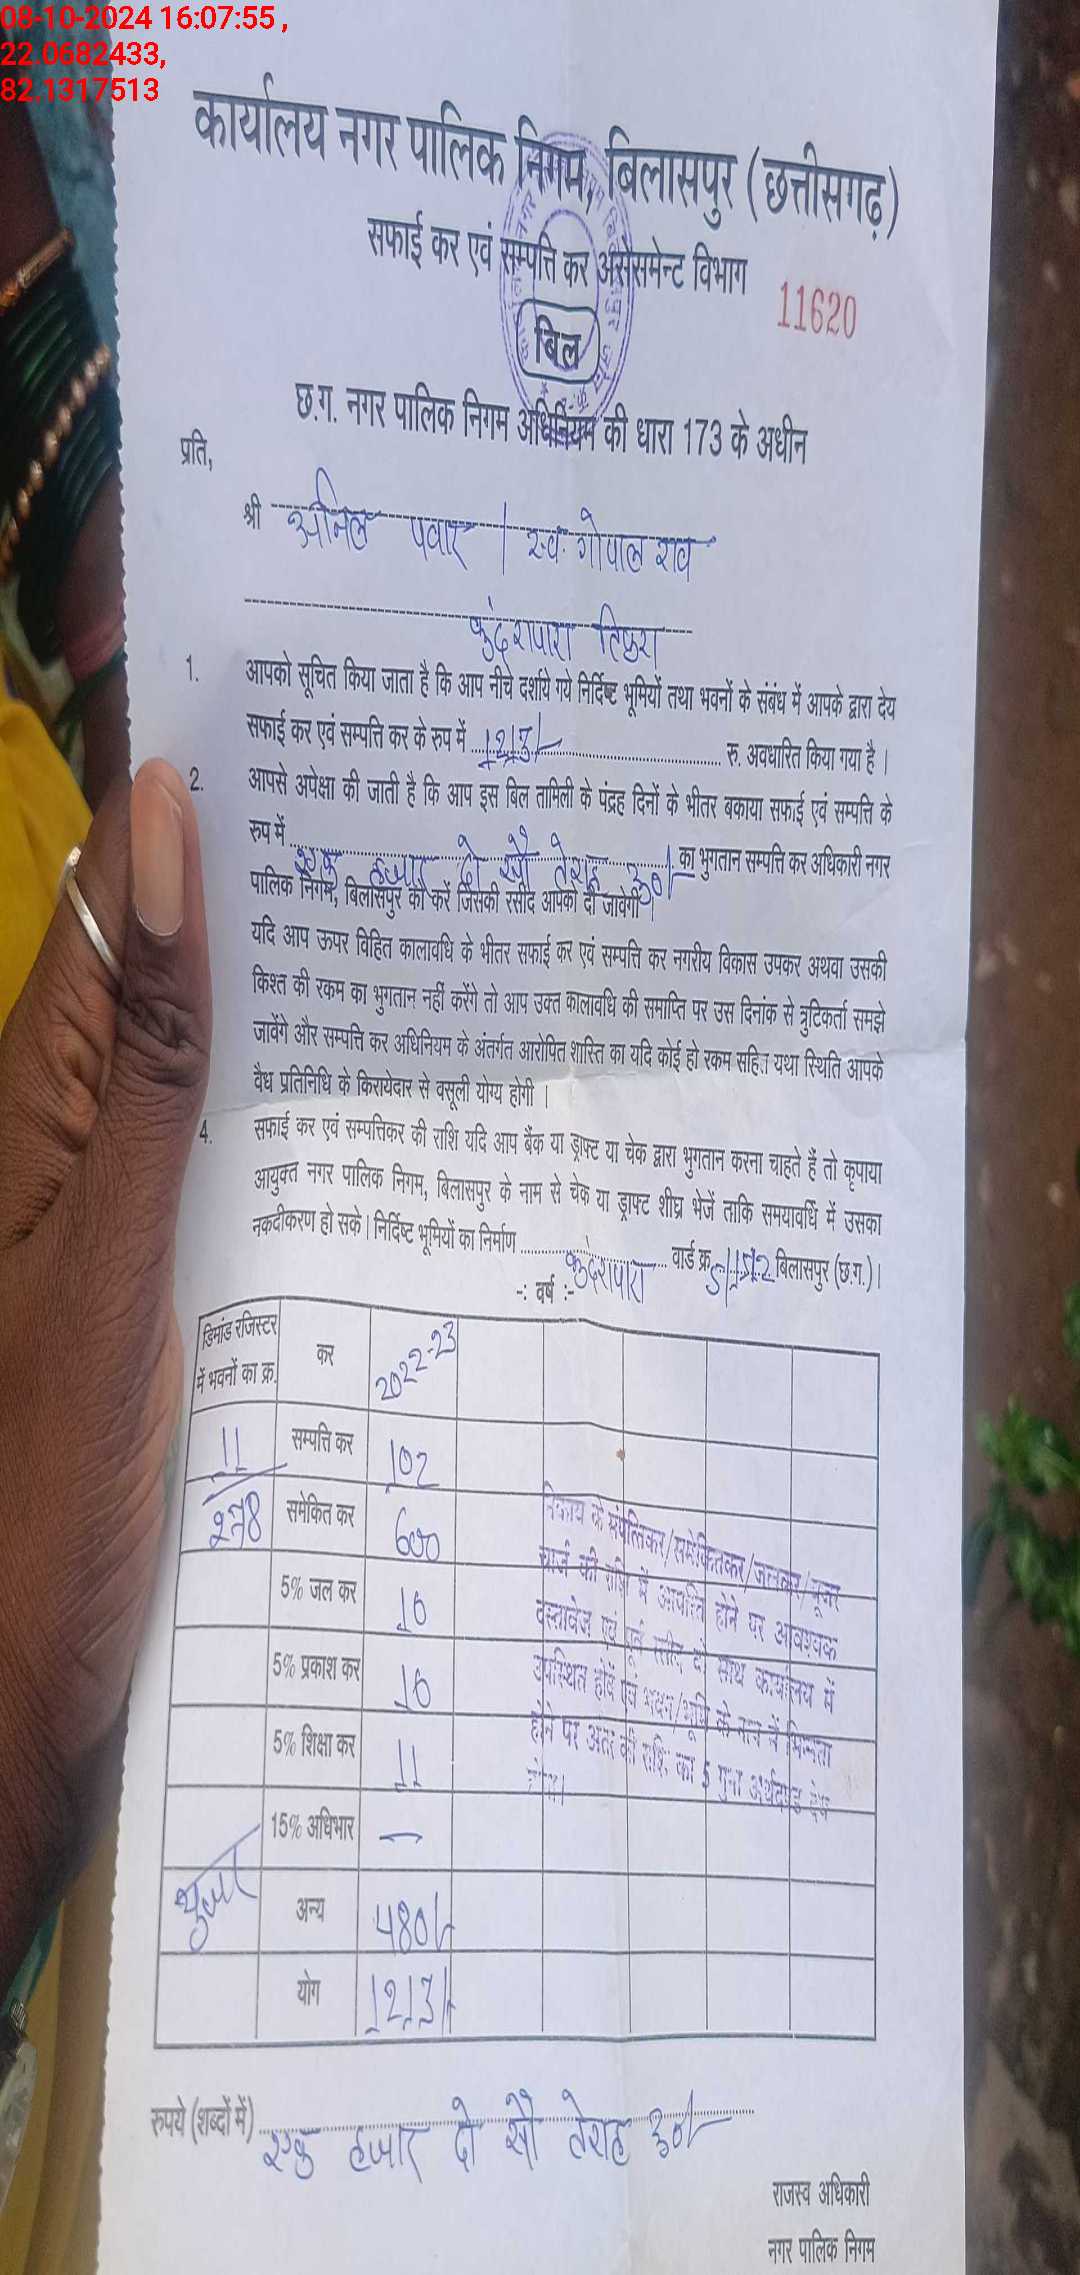 08-10-2024 16:07:55 ,
22.0682433,
82.1317513
कार्यालय नगर पालिक निगम, बिलासपुर (छत्तीसगढ़)
सफाई कर एवं सम्पत्ति कर असेसमेन्ट विभाग
11620
बिल
छ.ग. नगर पालिक निगम अधिनियम की धारा 173 के अधीन
प्रति,
श्री अनिल पवार / स्व. गोपाल राव
कुंदरापारा तिफरा
1. आपको सूचित किया जाता है कि आप नीचे दर्शाये गये निर्दिष्ट भूमियों तथा भवनों के संबंध में आपके द्वारा देय
सफाई कर एवं सम्पत्ति कर के रुप में 1213/- रु. अवधारित किया गया है ।
2. आपसे अपेक्षा की जाती है कि आप इस बिल तामिली के पंद्रह दिनों के भीतर बकाया सफाई एवं सम्पत्ति के
रुप में एक हजार दो सौ तेराह रु0/- का भुगतान सम्पत्ति कर अधिकारी नगर
पालिक निगम, बिलासपुर को करें जिसकी रसीद आपको दी जावेगी ।
यदि आप ऊपर विहित कालावधि के भीतर सफाई कर एवं सम्पत्ति कर नगरीय विकास उपकर अथवा उसकी
किश्त की रकम का भुगतान नहीं करेंगे तो आप उक्त कालावधि की समाप्ति पर उस दिनांक से त्रुटिकर्ता समझे
जावेंगे और सम्पत्ति कर अधिनियम के अंतर्गत आरोपित शास्ति का यदि कोई हो रकम सहित यथा स्थिति आपके
वैध प्रतिनिधि के किरायेदार से वसूली योग्य होगी ।
4. सफाई कर एवं सम्पत्तिकर की राशि यदि आप बैंक या ड्राफ्ट या चेक द्वारा भुगतान करना चाहते हैं तो कृपाया
आयुक्त नगर पालिक निगम, बिलासपुर के नाम से चेक या ड्राफ्ट शीघ्र भेजें ताकि समयावधि में उसका
नकदीकरण हो सके । निर्दिष्ट भूमियों का निर्माण कुंदरापारा वार्ड क्र. बिलासपुर (छ.ग.)।
-: वर्ष :-
डिमांड रजिस्टर में भवनों का क्र. कर 2022-23
11 सम्पत्ति कर 102
278 समेकित कर 600
5% जल कर 10
5% प्रकाश कर 10
5% शिक्षा कर 11
15% अधिभार —
यूजर अन्य 480/-
योग 1213/-
निकाय के संपत्तिकर/समेकितकर/जलकर/यूजर
चार्ज की राशि में आपत्ति होने पर आवश्यक
दस्तावेज एवं पूर्व रसीद के साथ कार्यालय में
उपस्थित होवें एवं भवन/भूमि के माप में भिन्नता
होने पर अंतर की राशि का 5 गुना अर्थदण्ड देय
होगा।
रुपये (शब्दों में) एक हजार दो सौ तेराह रु0/-
राजस्व अधिकारी
नगर पालिक निगम